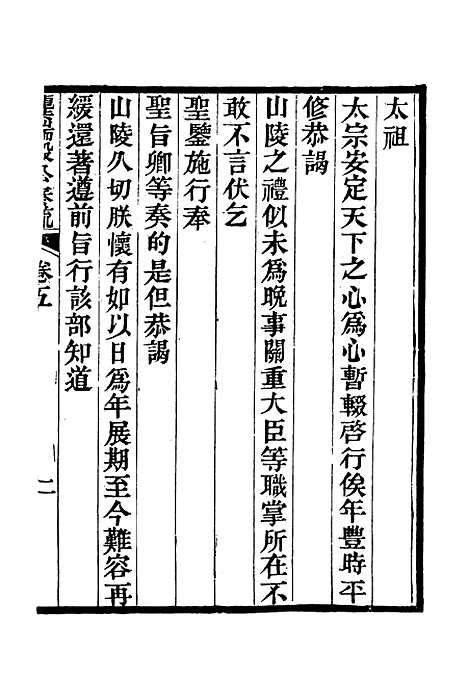 太祖
太宗安定天下之心為心暫輟啓行俟年豐時平
修恭謁
山陵之禮似未為晚事關重大臣等職掌所在不
敢不言伏乞
聖鑒施行奉
聖旨卿等奏的是但恭謁
山陵久切朕懷有如以日為年展期至今難容再
緩還著遵前旨行該部知道
卷五
二